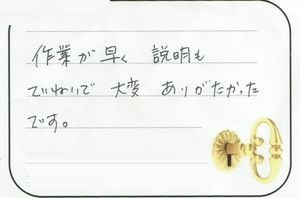 作業が早く 説明も
ていねいで 大変 ありがたかった
です。